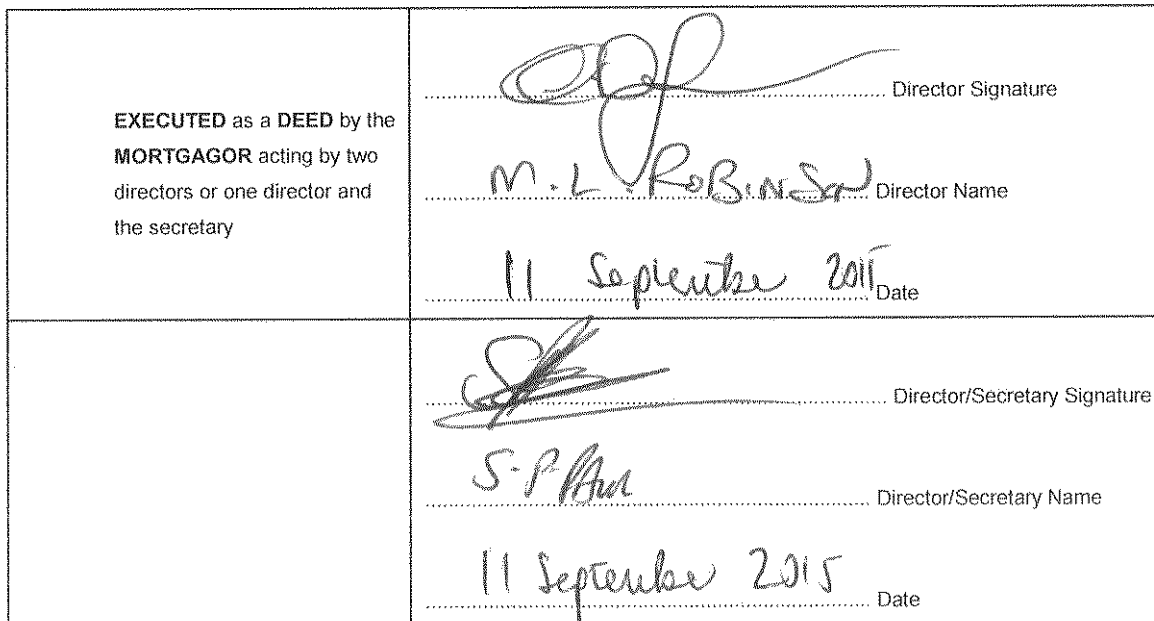 EXECUTED as a DEED by the
MORTGAGOR acting by two
directors or one director and
the secretary
Director Signature
M. L. ROBINSON Director Name
11 September 2015 Date
Director/Secretary Signature
S. P. Director/Secretary Name
11 September 2015 Date